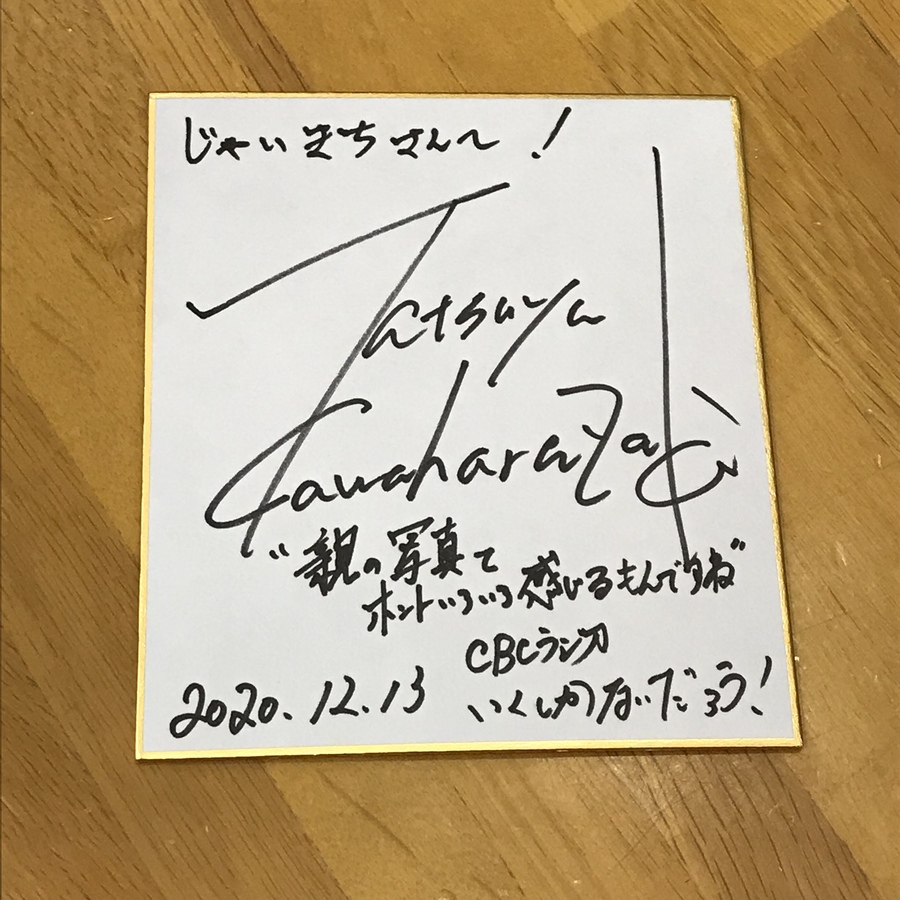 じゃいきちさんへ!
Tatsuya
Kawaharazaki
“親の写真て
ホントいろいろ感じるもんですね”
CBCラジオ
いくしかないだろう!
2020.12.13